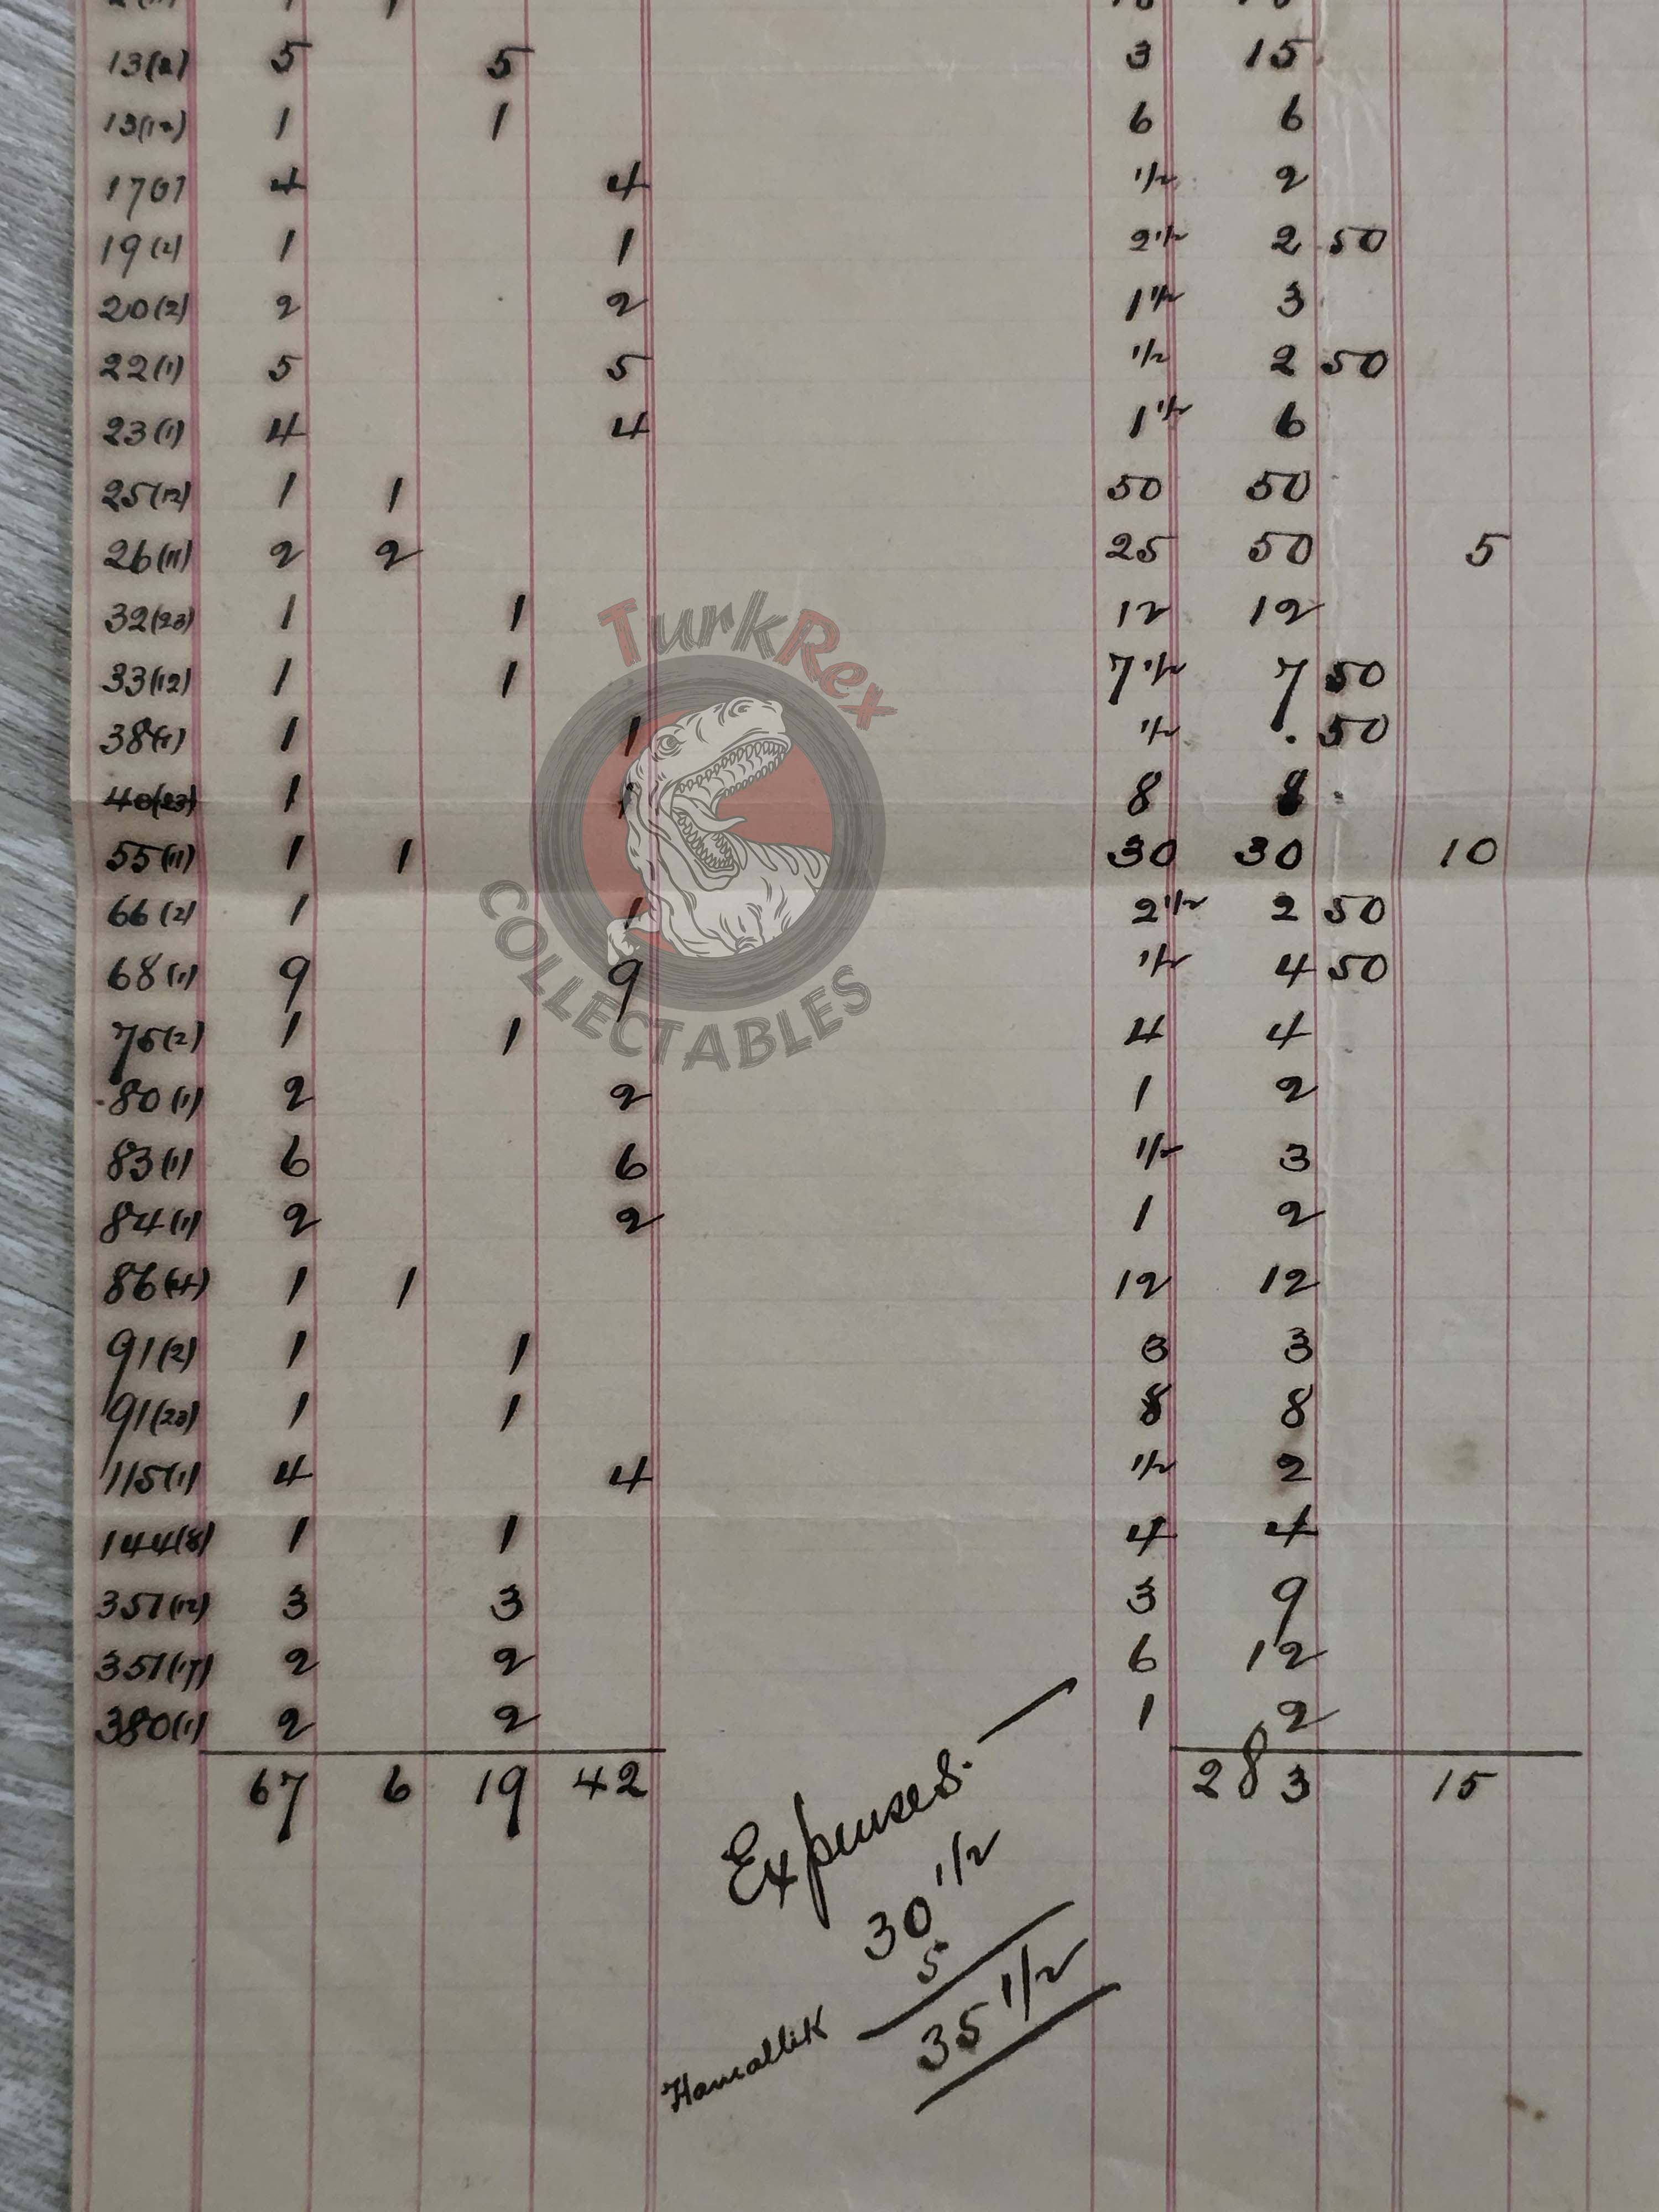 13(2) 5 5 3 15
13(12) 1 1 6 6
17(1) 4 4 1/2 2
19(2) 1 1 2 1/2 2 50
20(2) 2 2 1 1/2 3
22(1) 5 5 1/2 2 50
23(1) 4 4 1 1/2 6
25(12) 1 1 50 50
26(11) 2 2 25 50 5
32(23) 1 1 12 12
33(12) 1 1 7 1/2 7 50
38(1) 1 1 1/2 . 50
40(23) 1 1 8 8
55(11) 1 1 30 30 10
66(2) 1 1 2 1/2 2 50
68(1) 9 9 1/2 4 50
75(2) 1 1 4 4
80(1) 2 2 1 2
83(1) 6 6 1/2 3
84(1) 2 2 1 2
86(4) 1 1 12 12
91(2) 1 1 3 3
91(23) 1 1 8 8
115(1) 4 4 1/2 2
144(8) 1 1 4 4
351(12) 3 3 3 9
351(17) 2 2 6 12
380(1) 2 2 1 2
67 6 19 42 283 15
Expenses. —
30 1/2
Hamallik 5
35 1/2
TurkRex
COLLECTABLES